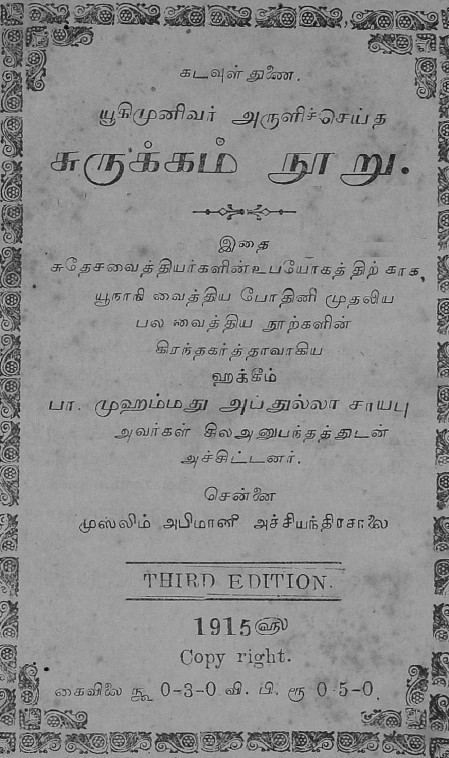 கடவுள் துணை.
யூகிமுனிவர் அருளிச்செய்த
சுருக்கம் நூறு.
இதை
சுதேசவைத்தியர்களின் உபயோகத்திற்காக,
யூநாநி வைத்திய போதினி முதலிய
பல வைத்திய நூற்களின்
கிரந்தகர்த்தாவாகிய
ஹக்கீம்
பா. முஹம்மது அப்துல்லா சாயபு
அவர்கள் சிலஅனுபந்தத்துடன்
அச்சிட்டனர்.
சென்னை
முஸ்லிம் அபிமானி அச்சியந்திரசாலை
THIRD EDITION.
1915௵
Copy right.
கைவிலை ரூ 0-3-0 வி. பி. ரூ 0-5-0.